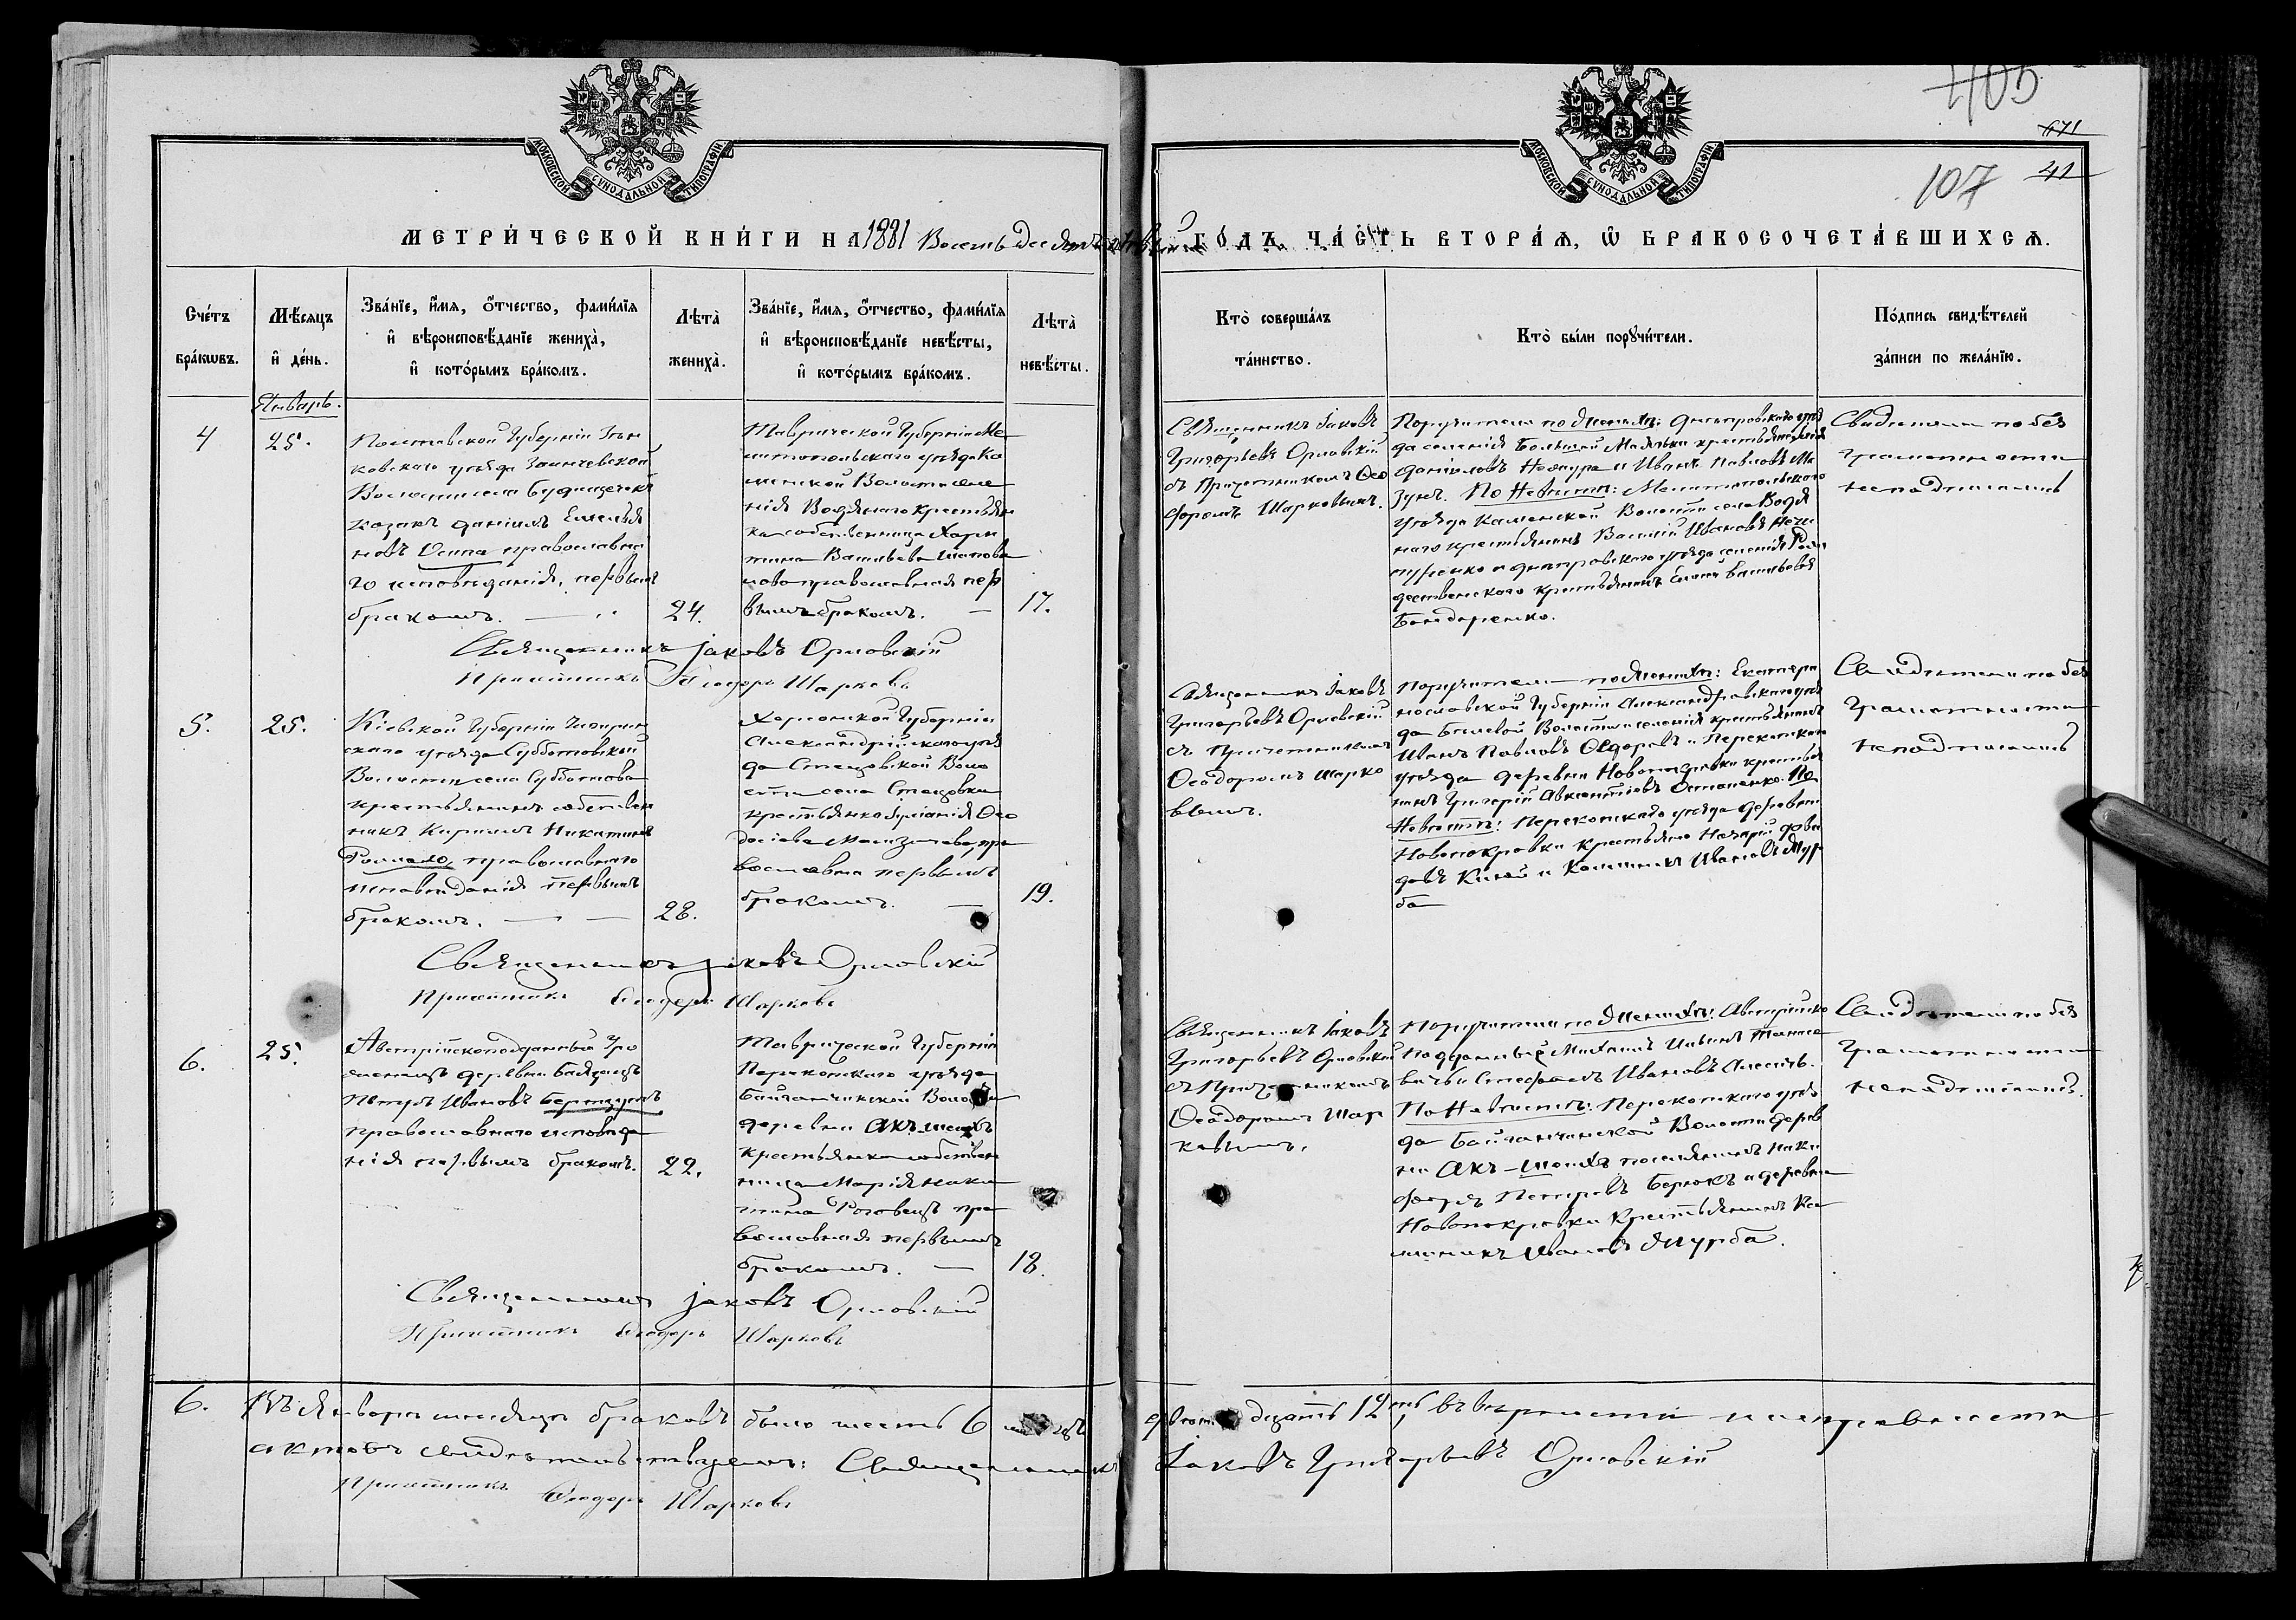 405
671
41
107
МОСКОВСКОЙ СѴНОДАЛЬНОЙ ТИПОГРАФІИ
МОСКОВСКОЙ СѴНОДАЛЬНОЙ ТИПОГРАФІИ
МЕТРИ́ЧЕСКОЙ КНИ́ГИ НА 1881 Восемьдесятъ первый ГО́ДЪ, ЧА́СТЬ ВТОРА́Я, Ѿ БРАКОСОЧЕТА́ВШИХСЯ.
Сче́тъ
бра́кωвъ.
Мѣ́сяцъ
и҆ де́нь.
Зва́нїе, и҆́мя, о҆́тчество, фамѝлїя
и҆ вѣроисповѣ́данїе жениха̀,
и҆ кото́рымъ бра́комъ.
Лѣта̀
жениха̀.
Зва́нїе, и҆́мя, о҆́тчество, фамѝлїя
и҆ вѣроисповѣ́данїе невѣ́сты,
и҆ кото́рымъ бра́комъ.
Лѣта̀
невѣ́сты.
Кто̀ соверша́лъ
та́инство.
Кто̀ бы́ли порꙋчи́тели.
По́дпись свидѣ́телей
за́писи по жела́нїю.
Январь.
4
25.
Полтавской Губерніи Зень
ковскаго уѣзда
Волости села
козакъ Даніилъ Емелья
новъ Осипа православна
го исповѣданія, первымъ
бракомъ.
24.
Таврической Губерніи Ме
литопольскаго уѣзда Ка
менской Волости селе
нія Водянаго крестьян
ка собственница Хари
тина Васильева
православная пер
вымъ бракомъ.
17.
Священникъ Іаковъ
Григорьевъ Орловскій
съ Причетникомъ Ѳео
доромъ Шарковымъ.
Поручители по женихѣ: Днепровскаго уѣз
да селенія Большой Маячки крестьяне
Даніиловъ и Иванъ Павловъ Ма
зунъ. По Невѣстѣ: Мелитопольскаго
уѣзда Каменской Волости села Водя
наго крестьянинъ Василій Ивановъ Нечи
пуренко и Днепровскаго уѣзда селенія Рож
дественскаго крестьянинъ Васильевъ
Бондаренко.
Свидетели по без
грамотности
неподписались
Священникъ Іаковъ Орловскій
Причетникъ Ѳеодоръ Шарковъ
5.
25.
Кіевской Губерніи Чигирин
скаго уѣзда Субботовской
Волости села Субботова
крестьянинъ собствен
никъ Кириллъ Никитинъ
православнаго
исповѣданія первымъ
бракомъ.
28.
Херсонской Губерніи
Александрійскаго уѣз
да Стецовской Воло
сти села Стецовки
крестьянка Іуліанія Ѳео
досіева пра
вославна первымъ
бракомъ.
19.
Священникъ Іаковъ
Григорьевъ Орловскій
съ Причетникомъ
Ѳеодоромъ Шарко
вымъ.
Поручители по женихѣ: Екатери
нославской Губерніи Александровскаго уѣз
да Волости селенія крестьянинъ
Иванъ Павловъ Ѳедоровъ и Перекопскаго
уѣзда деревни Новопокровки крестья
нинъ Григорій Авксентіевъ Остапенко. По
Невѣстѣ: Перекопскаго уѣзда деревни
Новопокровки крестьяне Назарій
довъ и Каллиникъ Ивановъ Жур
ба
Свидетели по без
грамотности
неподписались
Священникъ Іаковъ Орловскій
Причетникъ Ѳеодоръ Шарковъ
6.
25.
Австрійскоподданный Уро
женецъ деревни
Петръ Ивановъ
православнаго исповѣда
нія первымъ бракомъ.
22.
Таврической Губерніи
Перекопскаго уѣзда
Байгончикской Волости
деревни Акъ-шеихъ
крестьянка собствен
ница Марія Ники
тина Роговецъ пра
вославная первымъ
бракомъ.
18.
Священникъ Іаковъ
Григорьевъ Орловскій
съ Причетникомъ
Ѳеодоромъ Шар
ковымъ.
Поручители по женихѣ: Австрійско
подданные Михаилъ Ильинъ
и Стефанъ Ивановъ
По Невѣстѣ: Перекопскаго уѣз
да Байгончикской Волости дерев
ни Акъ-Шеихъ поселянинъ Ники
форъ Петровъ и деревни
Новопокровки Крестьянинъ Ка
ллиникъ Ивановъ Журба.
Свидетели по без
грамотности
неподписались.
Священникъ Іаковъ Орловскій
Причетникъ Ѳеодоръ Шарковъ
6.
Въ Январѣ мѣсяцѣ браковъ было шесть 6
двенадцать 12ть, въ вѣрности и исправности
актовъ свидѣтельствуемъ: Священникъ Іаковъ Григорьевъ Орловскій
Причетникъ Ѳеодоръ Шарковъ